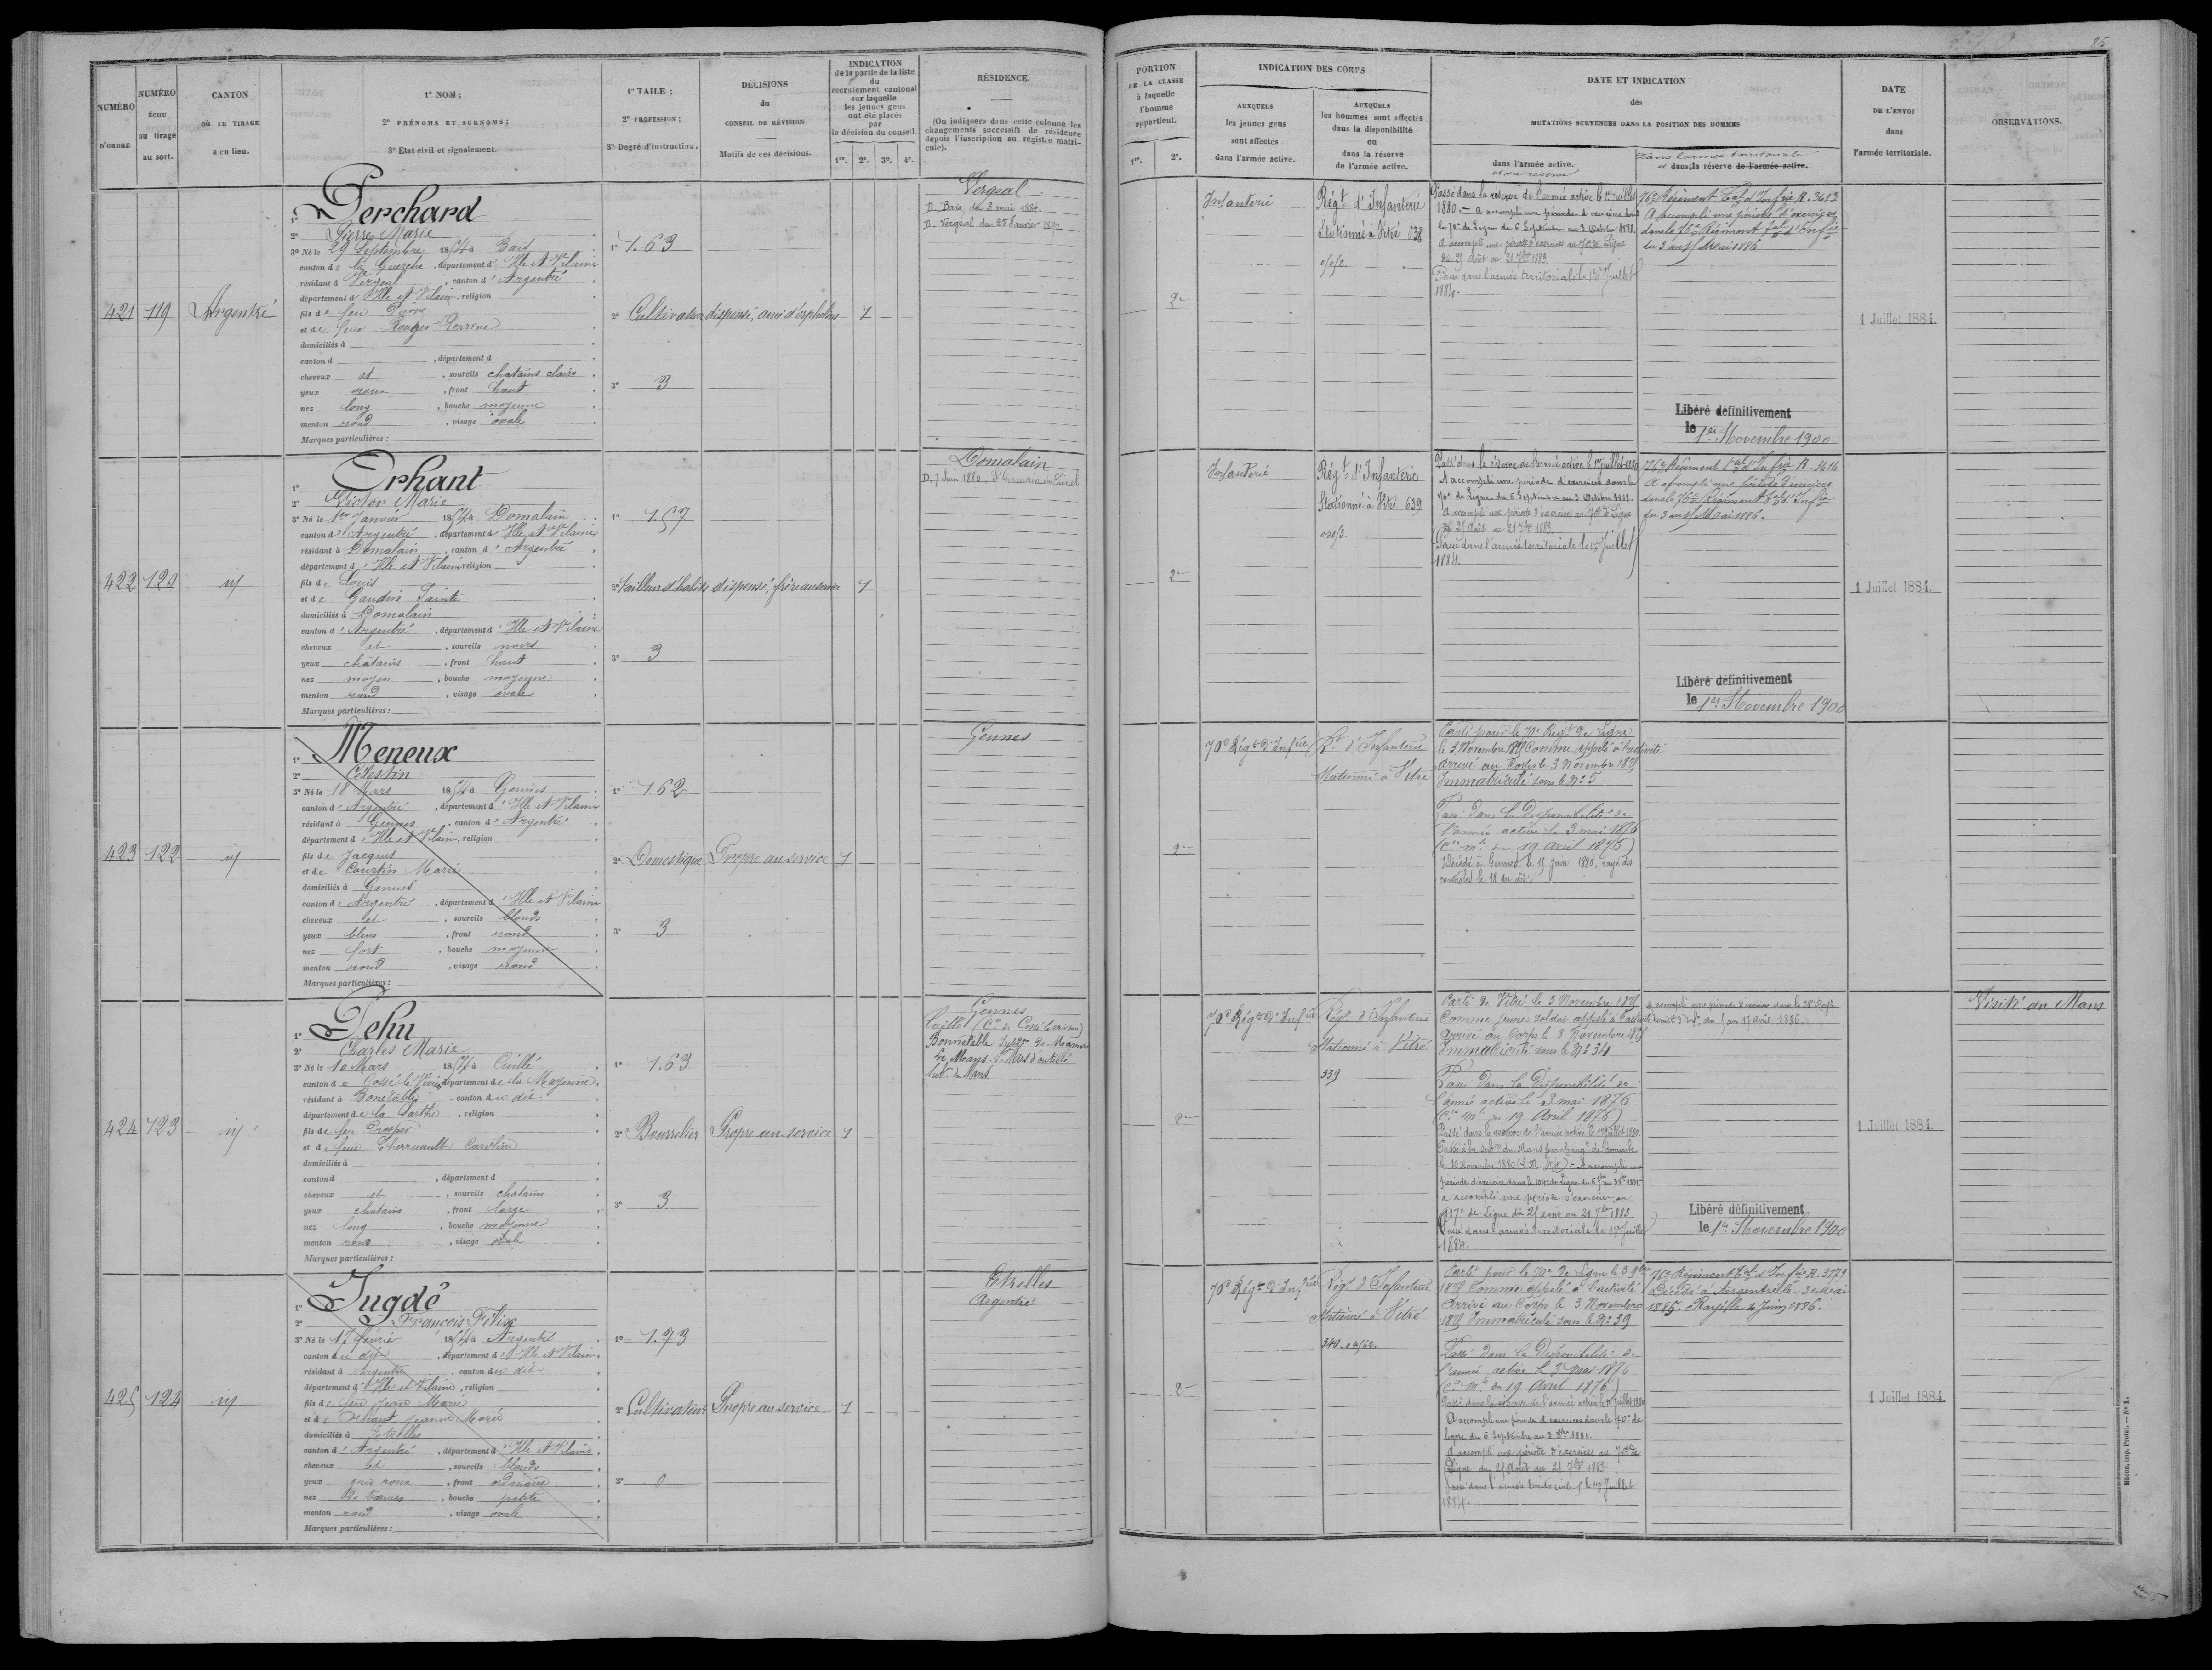 NUMÉRO D'ORDRE
NUMÉRO écnu au tirage au sort.
CANTON OÙ LE TIRAGE a eu lieu.
1° NOM;
2° PRÉNOMS ET SURNOMS;
3° Etat civil et signalement.
1° TAILE;
2° PROFESSION;
3° Degré d'instruction.
DÉCISIONS du CONSEIL DE RÉVISION
Motifs de ces décisions.
INDICATION de la partie de la liste du recrutement cantonal sur laquelle les jeunes gens ont été placés par la décision du conseil.
1re. 2e. 3e. 4e.
RÉSIDENCE.
(On indiquera dans cette colonne les changements successifs de résidence depuis l'inscription au registre matricule).
PORTION DE LA CLASSE à laquelle l'homme appartient.
1re. 2e.
INDICATION DES CORPS
AUXQUELS les jeunes gens sont affectés dans l'armée active.
AUXQUELS les hommes sont affectés dans la disponibilité ou dans la réserve de l'armée active.
DATE ET INDICATION des MUTATIONS SURVENUES DANS LA POSITION DES HOMMES
dans l'armée active.
et sa réserve
Dans l'armée territoriale
et dans sa réserve de l'armée active.
DATE DE L'ENVOI dans l'armée territoriale.
OBSERVATIONS.
85
421 119 Argentré
1° Perchard
2° Pierre Marie
3° Né le 29 Septembre 1854 à Bais
canton de la Guerche, département d'Ille et Vilaine
résidant à Vergeal, canton d'Argentré
département d'Ille et Vilaine, religion
fils de feu Pierre
et de feue Rouger Perrine
domiciliés à
canton d , département d
cheveux et , sourcils chatains clairs
yeux roux , front haut
nez long , bouche moyenne
menton rond , visage ovale
Marques particulières :
1° 1.63
2° Cultivateur
3° 3
dispensé, ainé d'orphelins
1
Vergeal
D. Bais du 3 mai 1884.
D. Vergéal du 28 Janvier 1890
2e
Infanterie
Régt d'Infanterie
Stationné à Vitré 638
Passé dans la réserve de l'armée active le 1er Juillet
1880. — A accompli une période d'exercices dans
le 70e de Ligne du 6 Septembre au 3 Octobre 1881.
A accompli une période d'exercices au 70e de Ligne
du 25 Août au 21 7bre 1883.
Passé dans l'armée territoriale le 1er Juillet
1884.
76e Régiment tal d'Infrie R. 3613
A accompli une période d'exercices
dans le 76e Régiment tal d'Infrie
du 3 au 15 Mai 1886.
Libéré définitivement
le 1er Novembre 1900
1 Juillet 1884.
422 120 id
1° Orhant
2° Victor Marie
3° Né le 1er Janvier 1854 à Domalain
canton d'Argentré, département d'Ille et Vilaine
résidant à Domalain, canton d'Argentré
département d'Ille et Vilaine religion
fils de Louis
et de Gaudin Sainte
domiciliés à Domalain
canton d'Argentré, département d'Ille et Vilaine
cheveux et , sourcils noirs
yeux châtains , front haut
nez moyen , bouche moyenne
menton rond , visage ovale
Marques particulières :
1° 1.57
2° Tailleur d'habits
3° 3
dispensé, frère au service
1
Domalain
D. 7 Juin 1880. St Germain du Pinel
2e
Infanterie
Régt d'Infanterie
Stationné à Vitré 639
Passé dans la réserve de l'armée active le 1er Juillet 1880
A accompli une période d'exercices dans le
70e de Ligne du 6 Septembre au 3 Octobre 1881.
A accompli une période d'exercices au 70e de Ligne
du 25 Août au 21 7bre 1883.
Passé dans l'armée territoriale le 1er Juillet
1884.
76e Régiment tal d'Infrie R. 3614
A accompli une période d'exercices
dans le 76e Régiment tal d'Infrie
du 3 au 15 Mai 1886.
Libéré définitivement
le 1er Novembre 1900
1 Juillet 1884.
423 122 id
1° Meneux
2° Célestin
3° Né le 18 Mars 1854 à Gennes
canton d'Argentré, département d'Ille et Vilaine
résidant à Gennes, canton d'Argentré
département d'Ille et Vilaine, religion
fils de Jacques
et de Courtin Marie
domiciliés à Gennes
canton d'Argentré, département d'Ille et Vilaine
cheveux et , sourcils blonds
yeux bleus , front rond
nez fort , bouche moyenne
menton rond , visage rond
Marques particulières :
1° 1.62
2° Domestique
3° 3
Propre au service
1
Gennes
2e
70e Régt d'Infrie
Rt d'Infanterie
Stationné à Vitré
Parti pour le 70e Régt de Ligne
le 3 Novembre 1875 Comme appelé à l'activité
Arrivé au Corps le 3 Novembre 1875
Immatriculé sous le No 5
Passé dans la Disponibilité de
l'armée active le 3 mai 1876
(Cre mle du 19 Avril 1876)
Décédé à Gennes le 15 Juin 1880, rayé des
contrôles le 18 du dit.
424 123 id
1° Pehu
2° Charles Marie
3° Né le 10 Mars 1854 à Cuillé
canton de Cossé le Vivien, département de la Mayenne
résidant à Bonétable, canton du dit
département de la Sarthe, religion
fils de feu Prosper
et de feue Cherruault Caroline
domiciliés à
canton d , département d
cheveux et , sourcils chatains
yeux chatains , front large
nez long , bouche moyenne
menton rond , visage ovale
Marques particulières :
1° 1.63
2° Bourrelier
3° 3
Propre au service
1
Gennes
Cuillé (Con de Cossé le vivien)
Bonnétable de Mamers
Le Mans. St Mars d'outillé
Subon du Mans.
2e
70e Régt d'Infrie
Régt d'Infanterie
Stationné à Vitré
339
Parti de Vitré le 3 Novembre 1875
Comme jeune soldat appelé à l'activité
Arrivé au Corps le 3 Novembre 1875
Immatriculé sous le No 34
Passé dans la Disponibilité de
l'armée active le 3 mai 1876
(Cre Mle du 19 Avril 1876)
Passé dans la réserve de l'armée active le 1er Juillet 1880
Passé à la Subon du Mans par changt de domicile
le 10 Novembre 1880 - A accompli une
période d'exercices dans le 104e de Ligne du 6 7bre au 3 8bre 1881
a accompli une période d'exercices au
117e de Ligne du 25 août au 21 7bre 1883.
Passé dans l'armée territoriale le 1er Juillet
1884.
A accompli une période d'exercices dans le 28e Regt
territ d'Infie du 5 au 17 avril 1886.
Libéré définitivement
le 1er Novembre 1900
1 Juillet 1884.
Visité au Mans
425 124 id
1° Jugdé
2° François Félix
3° Né le 17 février 1854 à Argentré
canton du dit, département d'Ille et Vilaine
résidant à Argentré, canton du dit
département d'Ille et Vilaine, religion
fils de feu Jean Marie
et de Jeanne Marie
domiciliés à Etrelles
canton d'Argentré, département d'Ille et Vilaine
cheveux et , sourcils blonds
yeux gris roux , front ordinaire
nez , bouche petite
menton rond , visage ovale
Marques particulières :
1° 1.73
2° Cultivateur
3° 0
Propre au service
1
Etrelles
Argentré
2e
70e Régt d'Infrie
Régt d'Infanterie
Stationné à Vitré
Parti pour le 70e de Ligne le 3 9bre
1875 Comme appelé à l'activité
Arrivé au Corps le 3 Novembre
1875 Immatriculé sous le No 39
Passé dans la Disponibilité de
l'armée active le 3 mai 1876
(Cre Mle du 19 Avril 1876)
Passé dans la réserve de l'armée active le 1er Juillet 1880
A accompli une période d'exercices dans le 70e de
ligne du 6 Septembre au 3 8bre 1881.
A accompli une période d'exercices au 70e de
Ligne du 25 Août au 21 7bre 1883
Passé dans l'armée territoriale le 1er Juillet
1884.
76e Régiment tal d'Infrie R. 3179
Décédé à Argentré le 3 Mai
1886. Rayé le 4 Juin 1886.
1 Juillet 1884.
Mâcon, imp. Protat. — No 1.